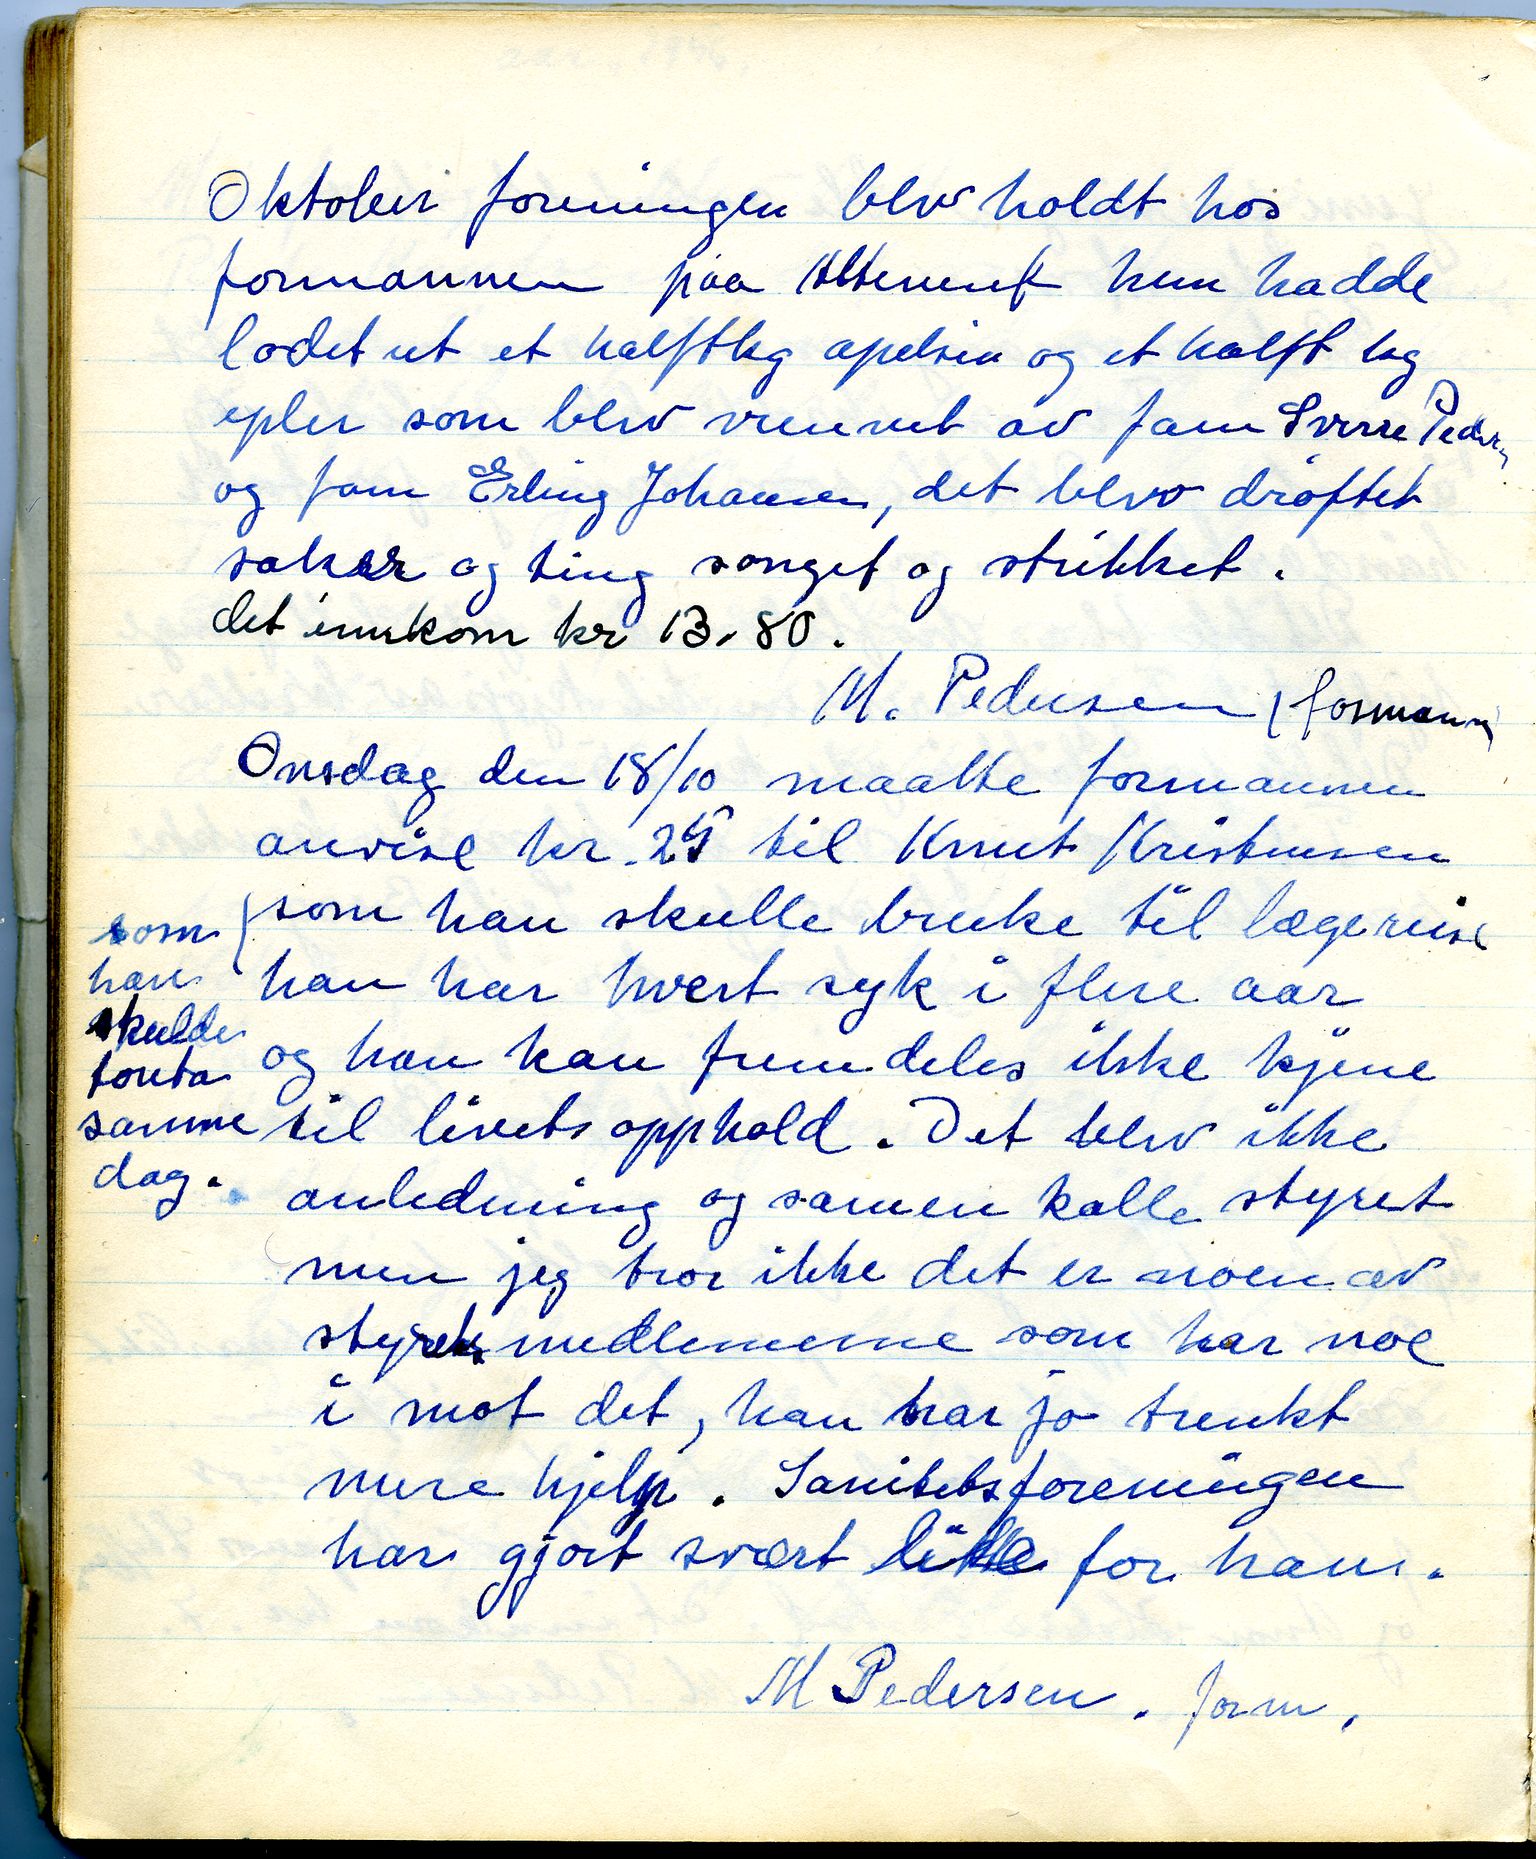 Oktober foreningen blev holdt hos
formannen paa hun hadde
lodet ut et halft kg apelsin og et halft kg
epler som blev vunnet av fam Sverre Pedersen
og fam Erling Johansen, det blev drøftet
saker og ting sanget og strikket.
det innkom kr 13.80.
M. Pedersen / formann
Onsdag den 18/10 maatte formannen
anvise kr. 25 til Knut Kristensen
som han skulle bruke til lægereise
han har hvert syk i flere aar
og han kan fremdeles ikke kjene
til livets opphold. Det blev ikke
anledning og samen kalle styret
men jeg tror ikke det er noen av
styrets medlemmene som har noe
i mot det, han har jo trenkt
mere hjelp. Sanitetsforeningen
har gjort svært litte for ham.
M Pedersen. form.
som
han
skulde
foreta
samme
dag.